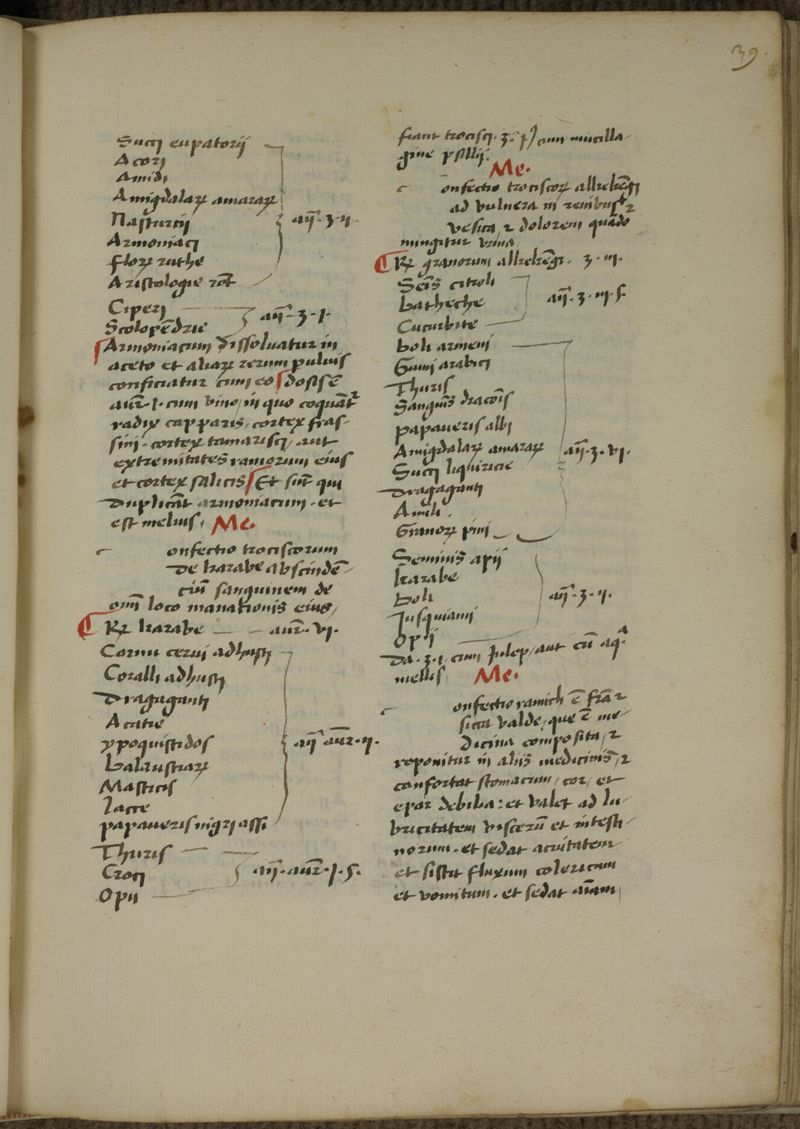 39.
Succi eupatorij
Acori
Amidi
Amigdalaꝝ amaraꝝ
Nasturcij
Armoniaci
floꝝ ruthe
Aristologie rot̄
aīī. ʒ. ii.
Ciperi
Scolopēdrie
aīī. ʒ. i.
Armoniacum dissoluatur in
aceto et aliaꝝ rerum puluis
conficiatur cum eo dosis ē
aur̄. i. cum vino, in quo coquāt᷑
radix capparis, cortex fras-
sini. cortex tamarisci, aut
extremitates ramorum eius
et cortex salicis Et sūt qui
duplicāt armoniacum. et
est melius. Me.
c onfectio trociscorum
de karabe abscindē-
cium sanguinem de
omī loco manationis eius,
R℞ karabe aur̄. vi.
Cornu cerui adhusti
Coralli adhusti
Dragaganti
Acatie
ypoquistidos
balaustiaꝝ
Masticis
lacce
papaueris nigri assi
aīī aur̄. ii.
Thuris
Croci
Opii
aīī. aur̄. i. s.
fiant trocisci. ʒ. i cum mucilla-
gine psillij.
Me.
c onfectio trociscoꝝ alkekēgi
ad vulnera in renibus et
vesica, et dolorem quādo
mingitur vrina
℞ granorum alkekēgi. ʒ. iii.
Seīs citroli
batheche
Cucurbite
aīī. ʒ. iii. s.
boli armeni
Gumi arabici
Thuris
Sanguīs dracōis
papaueris albi
Amigdalaꝝ amaraꝝ
Succi liquiricie
Dragaganti
Amili.
Granoꝝ pini
aīī. ʒ. vi.
Seminis apii
karabe
boli
Jusquiami
Opii
aīī. ʒ. ii.
Da. ʒ. i. cum Julep, aut cū aq̄
mellis. Me.
c onfectio ramich ē fr̄a et
sicca valde, que ē me-
dicina composita, et
reponitur in aliis medicinis, et
confortat stomacum, cor, et
epar debilia: et valet ad lu-
bricitatem viscerū et intesti-
norum. et sedat acuitatem
et sistit fluxum colericum
et vomitum. et sedat